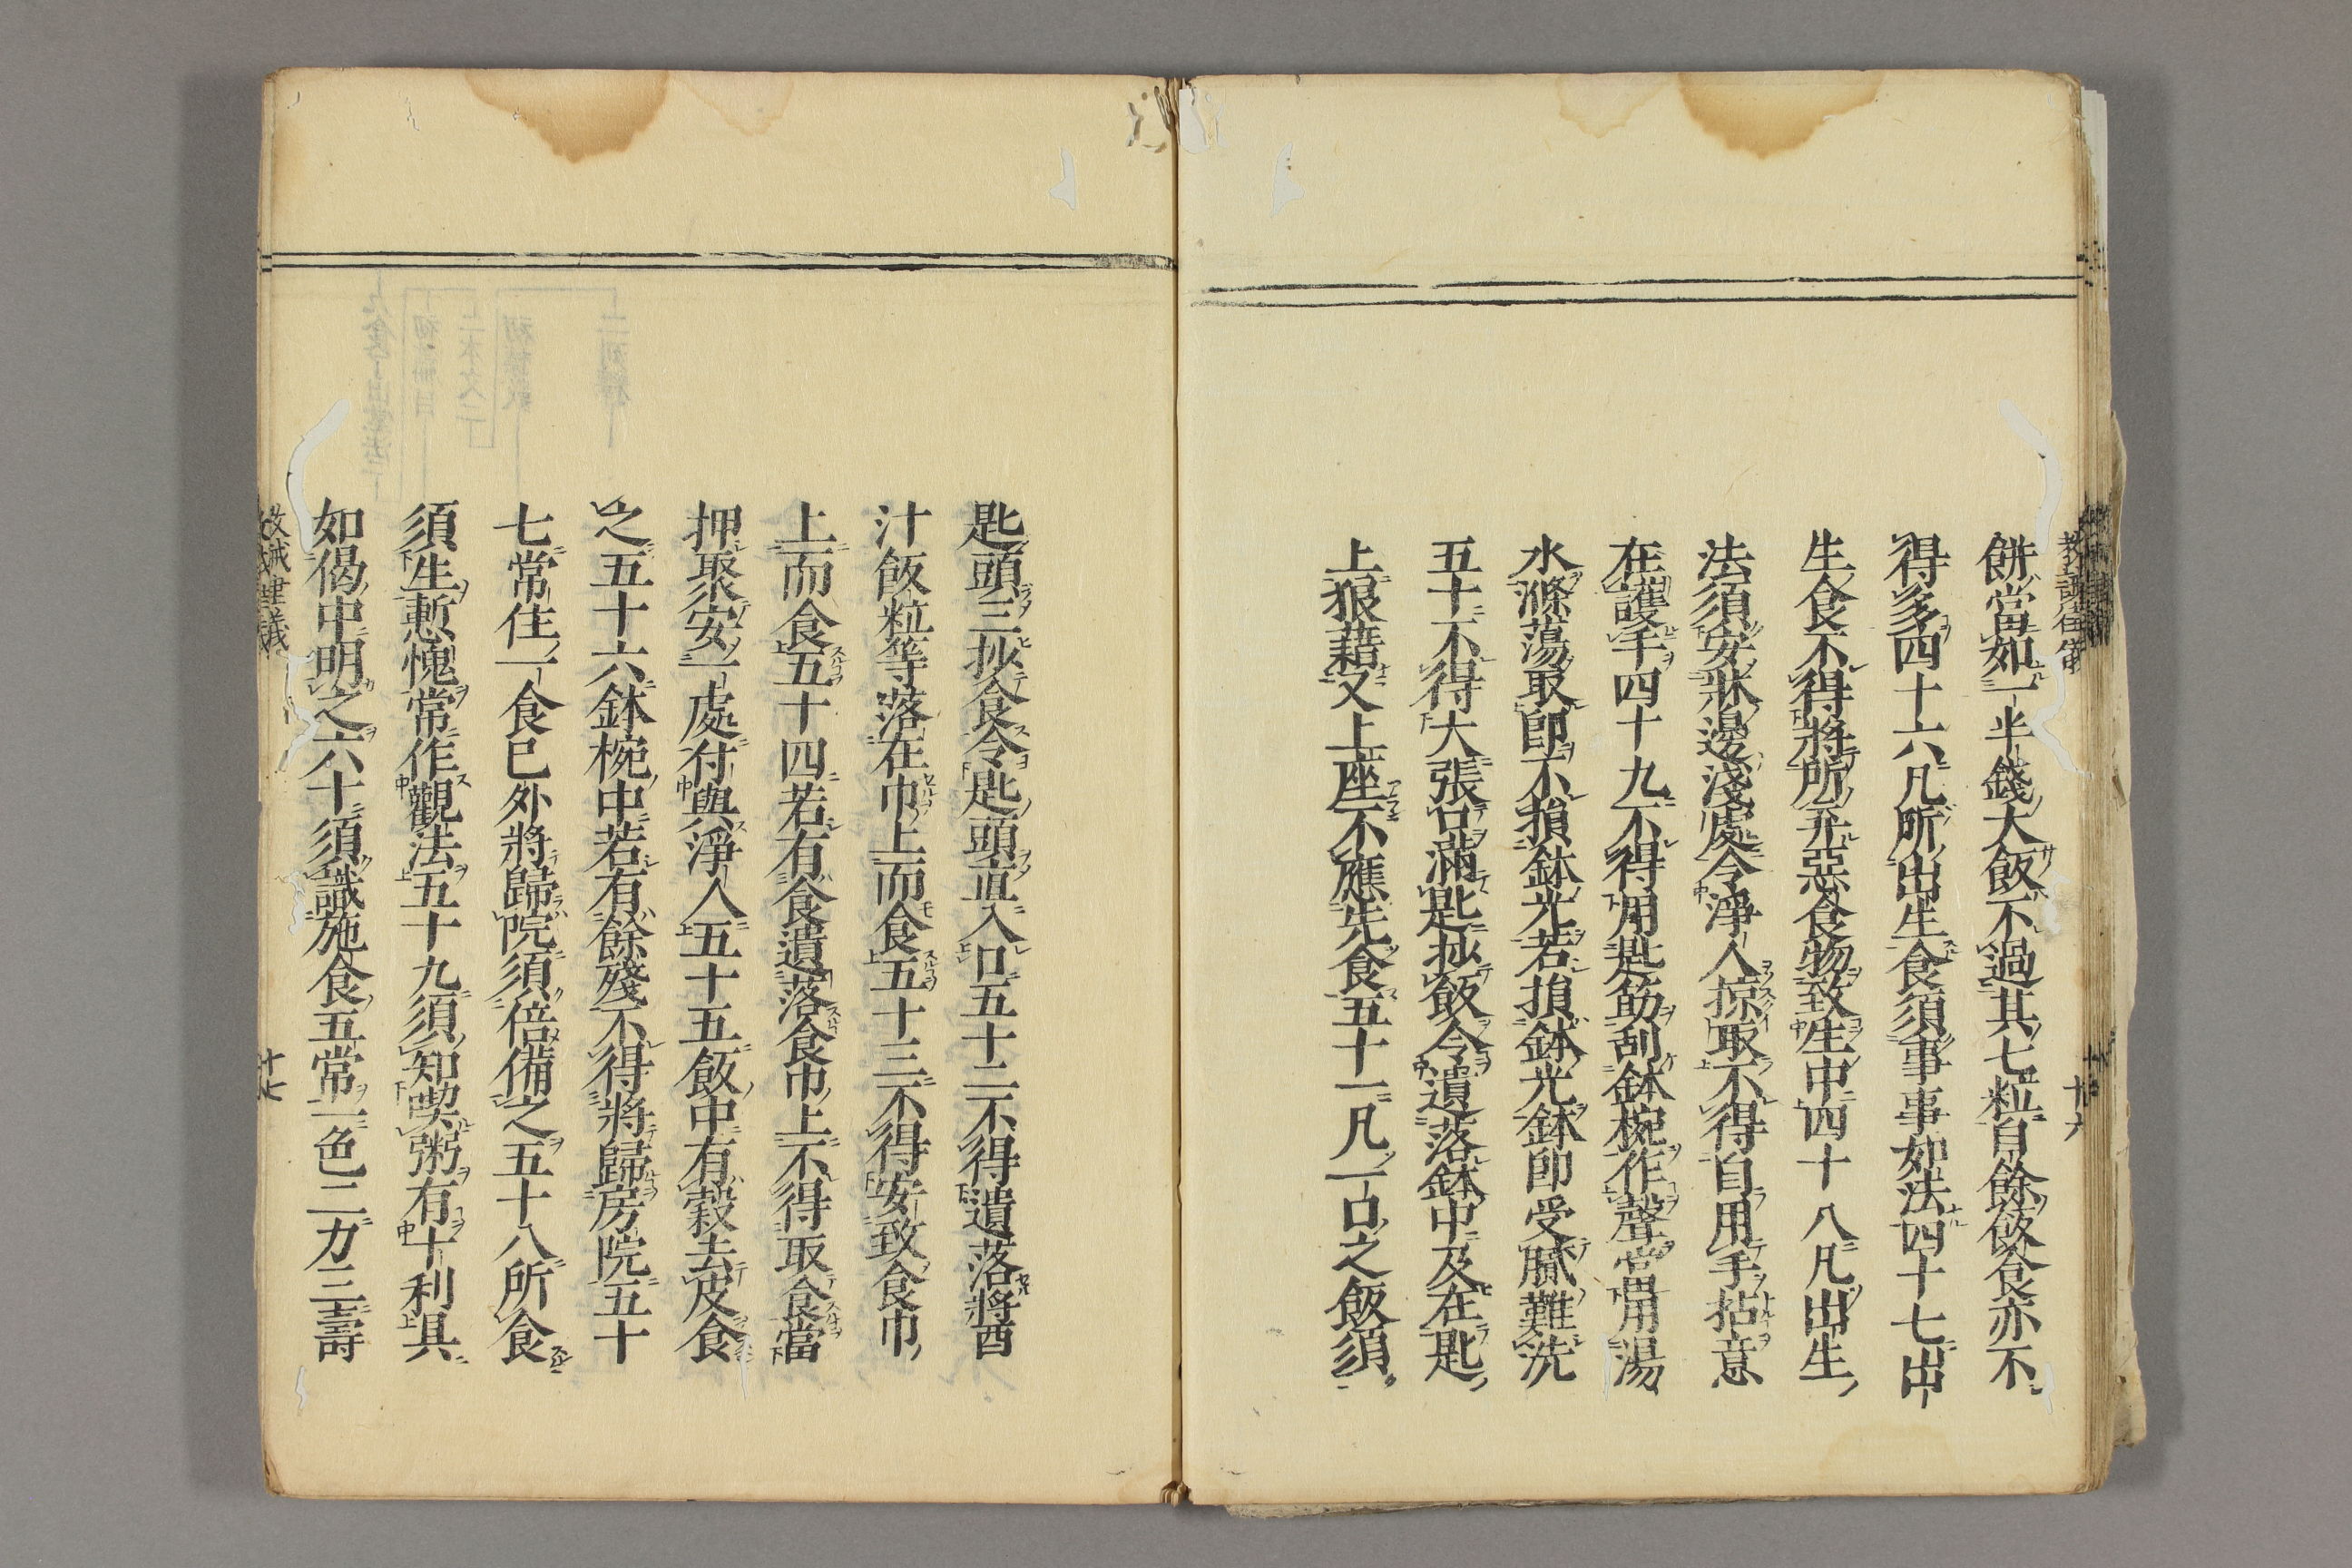 餅當如一半錢大飯不過其七粒自餘飯食亦不
得多四十六凡所出生食須事事如法四十七出
生食不得將所弃惡食物致生中四十八凡出生
法須安牀邊淺處令淨人掠取不得自用手拈意
在護手四十九不得用匙筯刮鉢椀作聲當用湯
水滌蕩取即不損鉢光若損鉢光鉢即受膩難洗
五十不得大張口滿匙抄飯令遺落鉢中及在匙
上狼藉又上座不應先食五十一凡一口之飯須
匙頭三抄食令匙頭直入口五十二不得遺落將酉
汁飯粒等落在巾上而食五十三不得安致食巾
上而食五十四若有食遺落食巾上不得取食當
押聚安一處付與淨人五十五飯中有穀去皮食
之五十六鉢椀中若有餘殘不得將歸房院五十
七常住一食已外將歸院須倍備之五十八所食
須生慙愧常作觀法五十九須知喫粥有十利具
如偈中明之六十須識施食五常一色二力三壽
十七